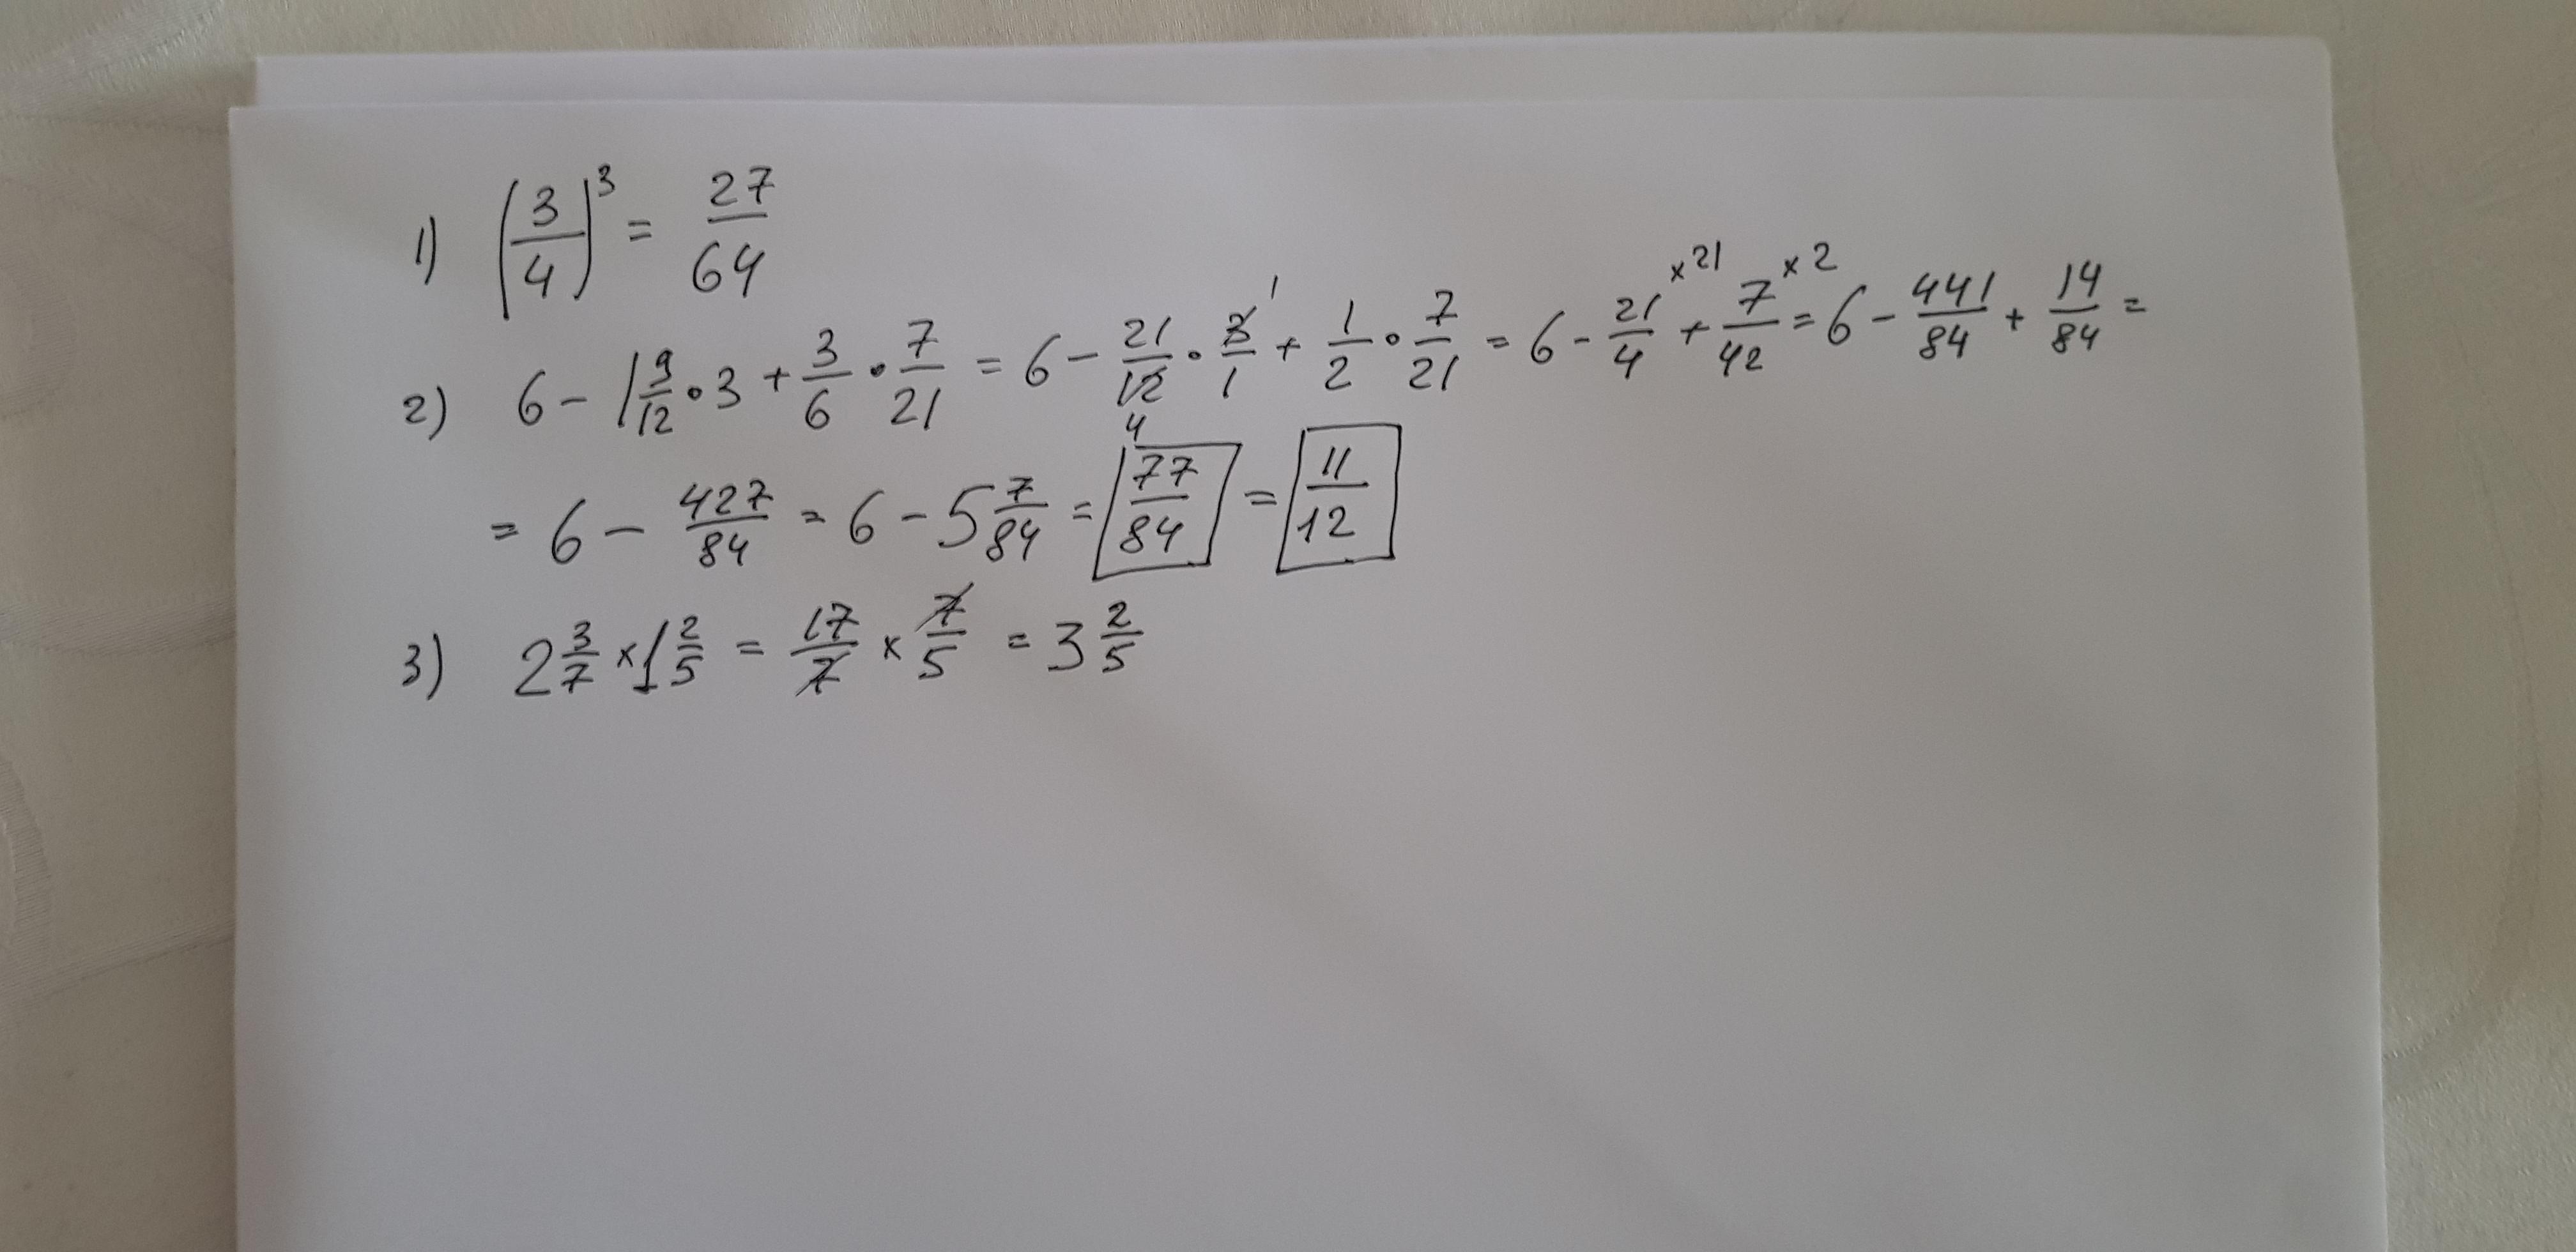 1) (3/4)³ = 27/64
2) 6 - 1 9/12 • 3 + 3/6 • 7/21 = 6 - 21/12 4 • 3/1 1 + 1/2 • 7/21 = 6 - 21/4 ×21 + 7/42 ×2 = 6 - 441/84 + 14/84 =
= 6 - 427/84 = 6 - 5 7/84 = 77/84 = 11/12
3) 2 3/7 × 1 2/5 = 17/7 × 7/5 = 3 2/5